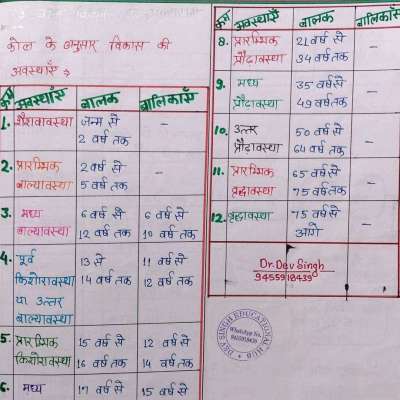 कोल के अनुसार विकास की
अवस्थाएँ →
क्र॰ अवस्थाएँ बालक बालिकाएँ
1. शैशवावस्था जन्म से –
2 वर्ष तक
2. प्रारम्भिक 2 वर्ष से –
बाल्यावस्था 5 वर्ष तक
3. मध्य 6 वर्ष से 6 वर्ष से
बाल्यावस्था 12 वर्ष तक 10 वर्ष तक
4. पूर्व 13 से 11 वर्ष से
किशोरावस्था 14 वर्ष तक 12 वर्ष तक
या उत्तर
बाल्यावस्था
5. प्रारम्भिक 15 वर्ष से 12 वर्ष से
किशोरावस्था 16 वर्ष तक 14 वर्ष तक
6. मध्य 17 वर्ष से 15 वर्ष से
अवस्थाएँ बालक बालिकाएँ
8. प्रारम्भिक 21 वर्ष से –
प्रौढावस्था 34 वर्ष तक
9. मध्य 35 वर्ष से –
प्रौढावस्था 49 वर्ष तक
10. उत्तर 50 वर्ष से –
प्रौढावस्था 64 वर्ष तक
11. प्रारम्भिक 65 वर्ष से –
वृद्धावस्था 75 वर्ष तक
12. वृद्धावस्था 75 वर्ष से –
आगे
Dr. Dev Singh
9455918439
DEV SINGH EDUCATIONAL HUB
WhatsApp No.
9455918439